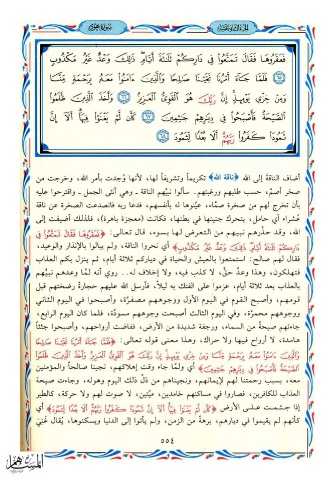 فَعَقَرُوهَا فَقَالَ تَمَتَّعُوا۟ فِى دَارِكُمْ ثَلَٰثَةَ أَيَّامٍ ۖ ذَٰلِكَ وَعْدٌ غَيْرُ مَكْذُوبٍ
﴿٦٥﴾ فَلَمَّا جَآءَ أَمْرُنَا نَجَّيْنَا صَٰلِحًا وَٱلَّذِينَ ءَامَنُوا۟ مَعَهُۥ بِرَحْمَةٍ مِّنَّا
وَمِنْ خِزْىِ يَوْمِئِذٍ ۗ إِنَّ رَبَّكَ هُوَ ٱلْقَوِىُّ ٱلْعَزِيزُ ﴿٦٦﴾ وَأَخَذَ ٱلَّذِينَ ظَلَمُوا۟
ٱلصَّيْحَةُ فَأَصْبَحُوا۟ فِى دِيَٰرِهِمْ جَٰثِمِينَ ﴿٦٧﴾ كَأَن لَّمْ يَغْنَوْا۟ فِيهَآ ۗ أَلَآ إِنَّ
ثَمُودَا۟ كَفَرُوا۟ رَبَّهُمْ ۗ أَلَا بُعْدًا لِّثَمُودَ ﴿٦٨﴾
أضاف الناقة إلى الله ﴿ناقة الله﴾ تكريماً وتشريفاً لها، لأنها وُجدت بأمر الله، وخرجت من
صخر أصمّ، حسب طلبهم ورغبتهم. سألوا نبيَّهم الناقة ـ وهي أنثى الجمل ـ واقترحوا عليه
بأن تخرج لهم من صخرة صمَّاء، عيَّنوها له بأنفسهم، فدعا ربه فانصدعت الصخرة عن ناقة
عُشَراء أي حامل، يتحرك جنينها في بطنها، فكانت (معجزة باهرة)، فلذلك أضيفت إلى
الله، وقد حذَّرهم نبيهم من التعرض لها بسوء، قال تعالى: ﴿فَعَقَرُوهَا فَقَالَ تَمَتَّعُوا فِي
دَارِكُمْ ثَلَاثَةَ أَيَّامٍ ذَلِكَ وَعْدٌ غَيْرُ مَكْذُوبٍ﴾ أي نحروا الناقة، ولم يبالوا بالإنذار والوعيد،
فقال لهم صالح: استمتعوا بالعيش والحياة في دياركم ثلاثة أيام، ثم ينزل بكم العذاب
فتهلكون، وهذا وعدٌ حقٌّ، لا كذب فيه، ولا إخلاف له.. روي أنه لمَّا وعدهم نبيُّهم
بالعذاب بعد ثلاثة أيام، عزموا على الفتك به ليلاً، فأرسل الله عليهم حجارة رضختهم قبل
قومهم، وأصبح القوم في اليوم الأول ووجوههم مصفرَّة، وأصبحوا في اليوم الثاني
ووجوههم محمرَّة، وفي اليوم الثالث أصبحت وجوههم مسودَّة، فلما كان اليوم الرابع،
جاءتهم صيحةٌ من السماء، ورجفة شديدة من الأرض، ففاضت أرواحهم، وأصبحوا جثثاً
هامدة، لا أرواح فيها ولا حراك، وهذا معنى قوله تعالى: ﴿فَلَمَّا جَاءَ أَمْرُنَا نَجَّيْنَا صَالِحًا
وَالَّذِينَ آمَنُوا مَعَهُ بِرَحْمَةٍ مِنَّا وَمِنْ خِزْيِ يَوْمِئِذٍ إِنَّ رَبَّكَ هُوَ الْقَوِيُّ الْعَزِيزُ وَأَخَذَ الَّذِينَ ظَلَمُوا الصَّيْحَةُ
فَأَصْبَحُوا فِي دِيَارِهِمْ جَاثِمِينَ﴾ أي ولمَّا جاء وقت إهلاكهم، نجينا صالحاً والمؤمنين
معه، بسبب رحمتنا لهم لإيمانهم، ونجيناهم من ذلِّ ذلك اليوم وهوله، وجاءت صيحة
العذاب للكافرين، فصاروا في مساكنهم خامدين، ميِّتين، لا صوت لهم ولا حركة، كالطير
إذا جثمت على الأرض ﴿كَأَنْ لَمْ يَغْنَوْا فِيهَا أَلَا إِنَّ ثَمُودَ كَفَرُوا رَبَّهُمْ أَلَا بُعْدًا لِثَمُودَ﴾ أي
كأنهم لم يقيموا في ديارهم، برهةً من الزمن، ولم يأتوا إلى الدنيا ويسكنوها، يُقال غَنِيَ
٥٥٤